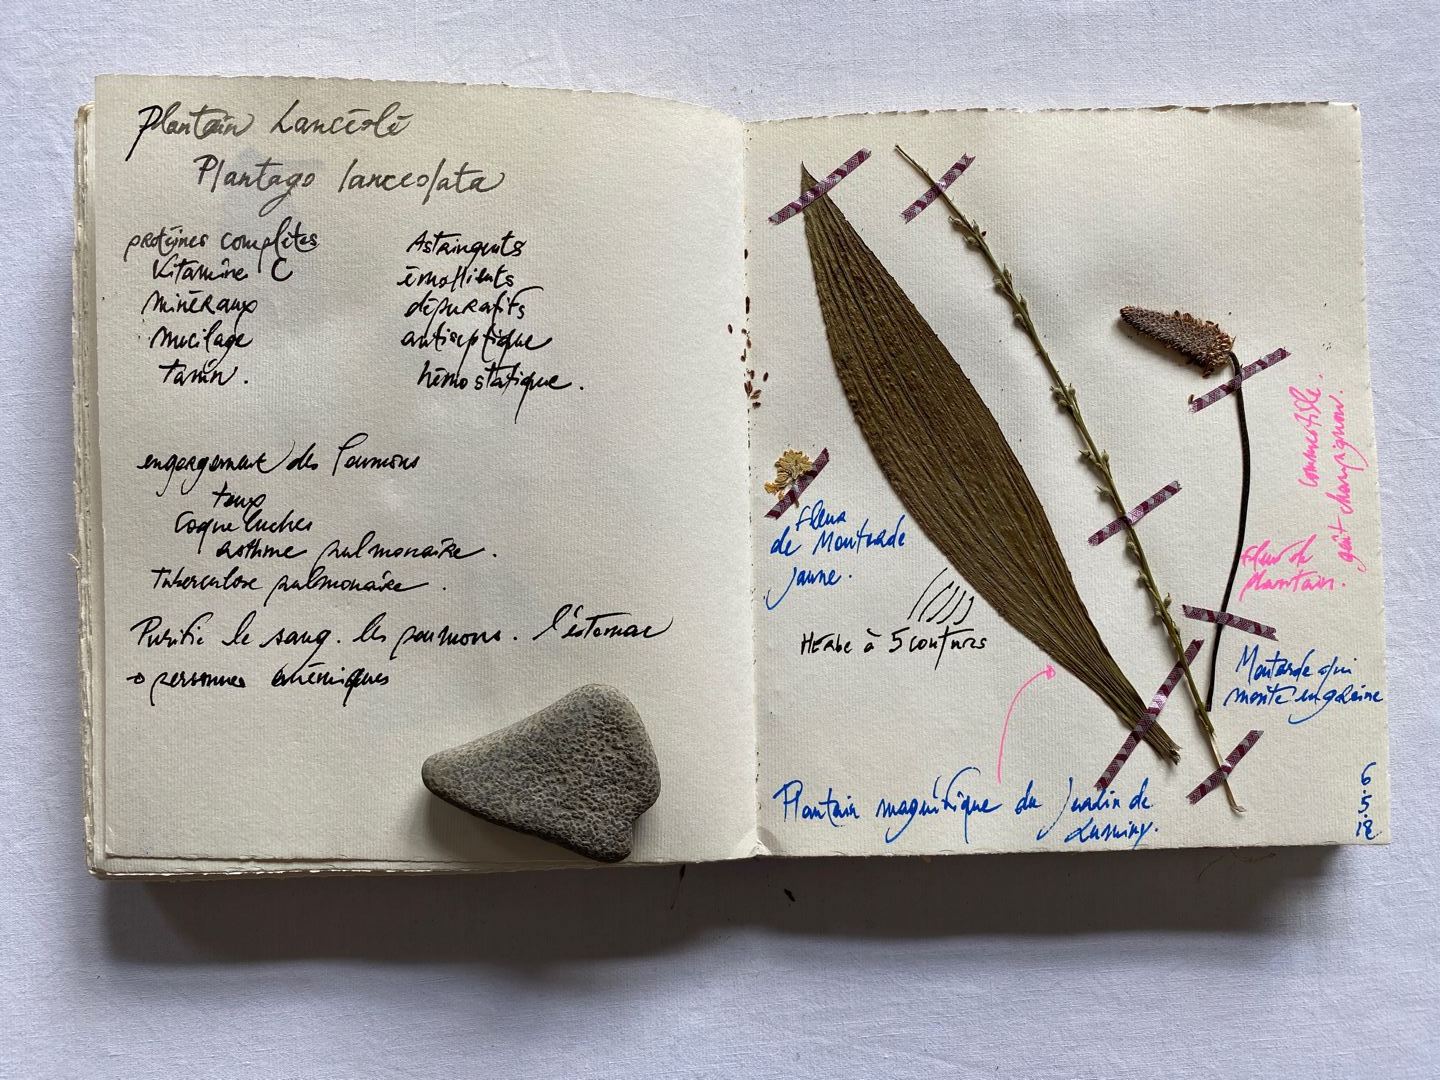 Plantain Lancéolé
Plantago lanceolata
protéines complètes
Vitamine C
minéraux
mucilage
tanin.
Astringents
émollients
dépuratifs
antiseptique
hémostatique.
engorgement des Poumons
toux
Coqueluches
asthme pulmonaire.
Tuberculose pulmonaire.
Purifie le sang. les poumons. l'estomac
→ personnes anémiques
Fleur
de Moutarde
jaune.
Herbe à 5 coutures
Plantain magnifique du Jardin de
Luminy.
comestible.
goût champignon.
Fleur de
plantain.
Moutarde qui
monte en graine
6
.5
.18